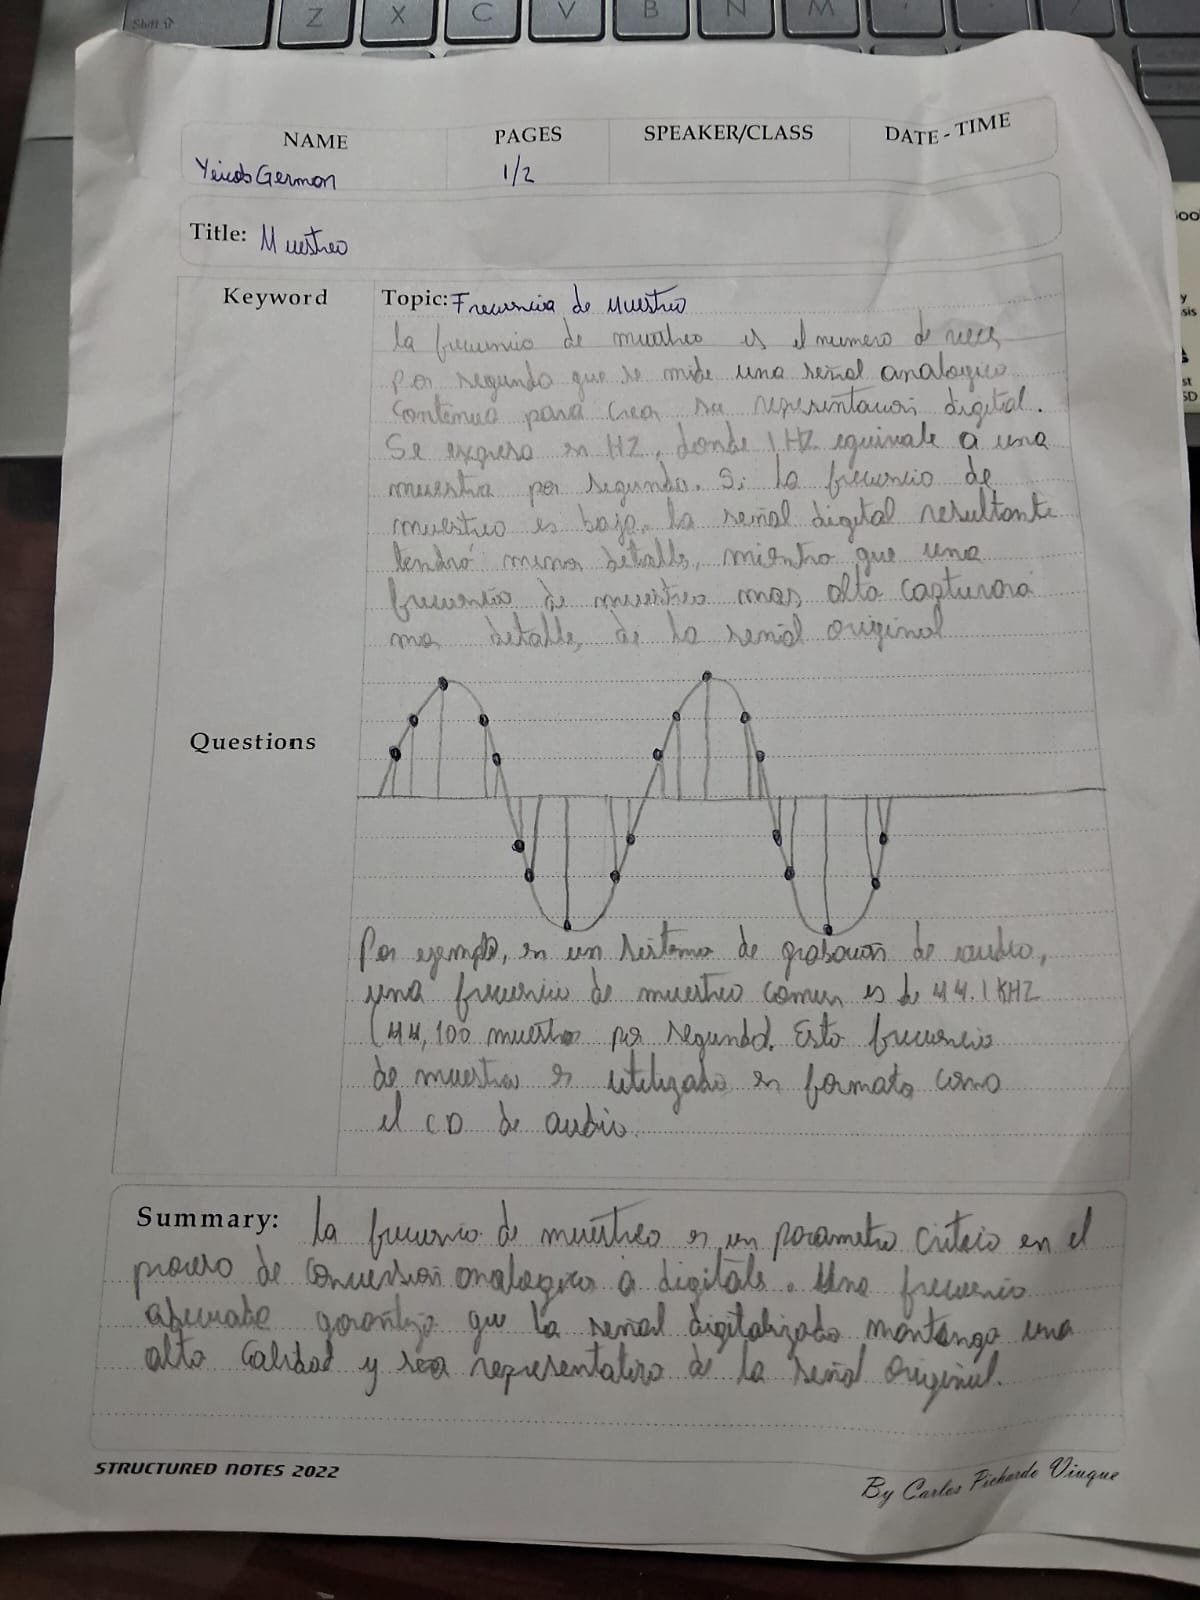 Shift ⇧
Z X C V B N M
NAME PAGES SPEAKER/CLASS DATE - TIME
Yeicob Germon 1/2
Title: Muestreo
Keyword
Topic: Frecuencia de Muestreo
la frecuencia de muestreo es el numero de veces
por segundo que se mide una señal analogica
continua para crear su representacion digital.
Se expresa en HZ, donde 1 HZ equivale a una
muestra por segundo. Si la frecuencia de
muestreo es baja, la señal digital resultante
tendrá menos detalles, mientra que una
frecuencia de muestreo mas alta capturara
mas detalles de la señal original
Questions
Por ejemplo, en un sistema de grabacion de audio,
una frecuencia de muestreo comun es de 44.1 KHZ
(44,100 muestras por segundo). Esta frecuencia
de muestreo es utilizada en formatos como
el CD de audio.
Summary: la frecuencia de muestreo es un parametro critico en el
proceso de conversion analogica a digitale. Una frecuencia
adecuada garantiza que la señal digitalizada mantenga una
alta calidad y sea representativa de la señal original.
STRUCTURED NOTES 2022
By Carlos Pichardo Viuque